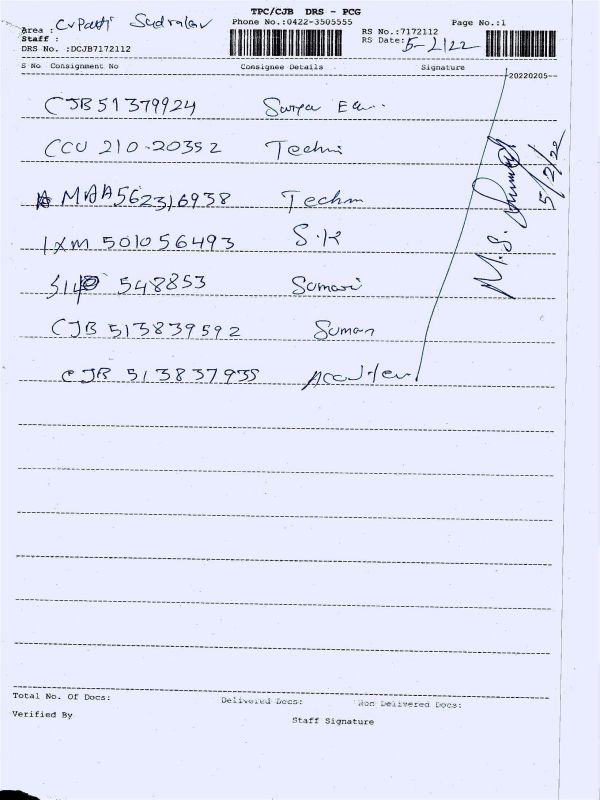 TPC/CJB DRS - PCG
Area :
Phone No.:0422-3505555
Page No.:1
Staff :
RS No.:7172112
DRS No. :DCJB7172112
RS Date: 5-2/22
S No Consignment No Consignee Details Signature
20220205
CJB 51379924 Surya
CCU 210-20352 Techni
MAA562316938 Techm
IXM 501056493 S.K
548853 Sumari
CJB 513839592 Suman
CJB 513837935
M.S.
5/2/22
Total No. Of Docs: Delivered Docs: Non Delivered Docs:
Verified By
Staff Signature